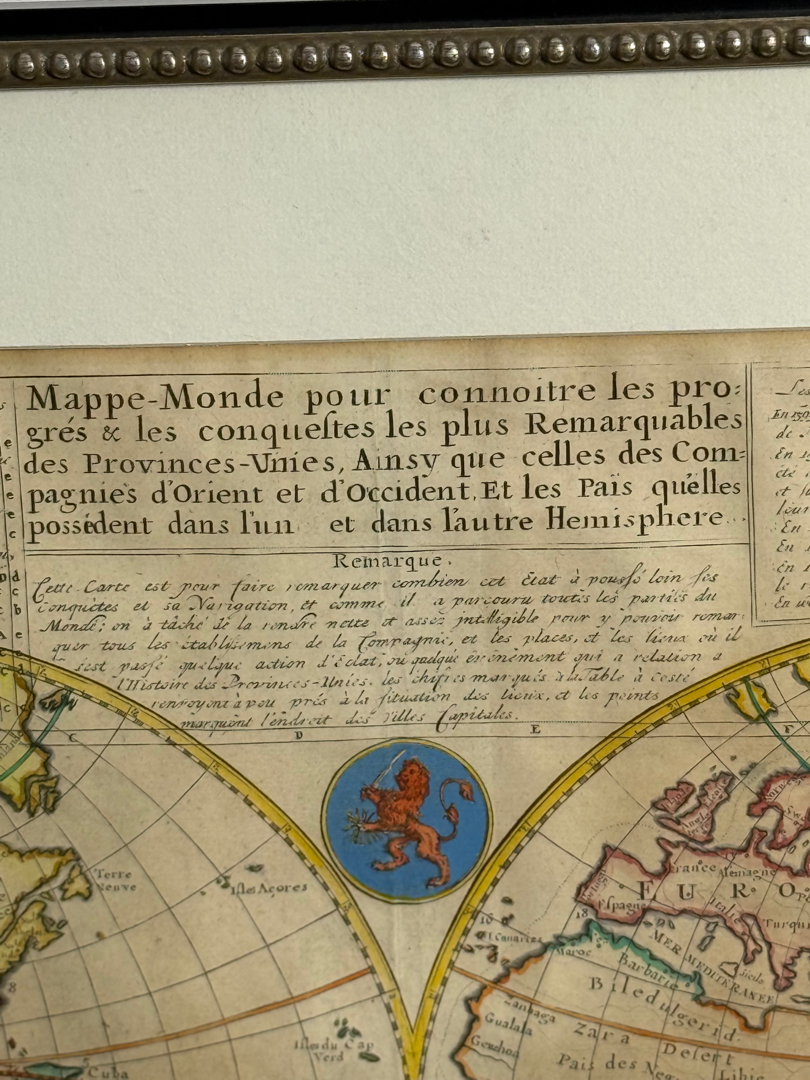 Mappe-Monde pour connoitre les pro=
grés & les conquestes les plus Remarquables
des Provinces-Vnies, Ainsy que celles des Com=
pagnies d'Orient et d'Occident, Et les Païs quelles
possédent dans l'un et dans l'autre Hemisphere.
Remarque.
Cette Carte est pour faire remarquer combien cet Etat à poussé loin ses
Conquétes et sa Navigation, et comme il a parcouru toutes les parties du
Monde; on à tâché de la rendre nette et assez intelligible pour y pouvoir remar
quer tous les établissemens de la Compagnie, et les places, et les lieux où il
s'est passé quelque action d'Eclat, ou quelque événement qui a relation a
l'Histoire des Provinces-Unies. les chifres marqués à la Table à costé
renvoyent à peu prés à la situation des lieux, et les points
marquent l'endroit des Villes Capitales.
En
de
En
été
et
leur
En
En
En
le
C
D
E
F
Terre
Neuve
Isles Açores
Isles du Cap
Verd
Cuba
8
16
18
I. Canaries
EURO
France
Alemagne
Espagne
Portugal
Italie
Turqui
Sicile
MER MEDITERANEE
Maroc
Barbarie
Biledulgerid
Zanhaga
Zara
Desert
Gualata
Genehoa
Pais des Neg
Libie